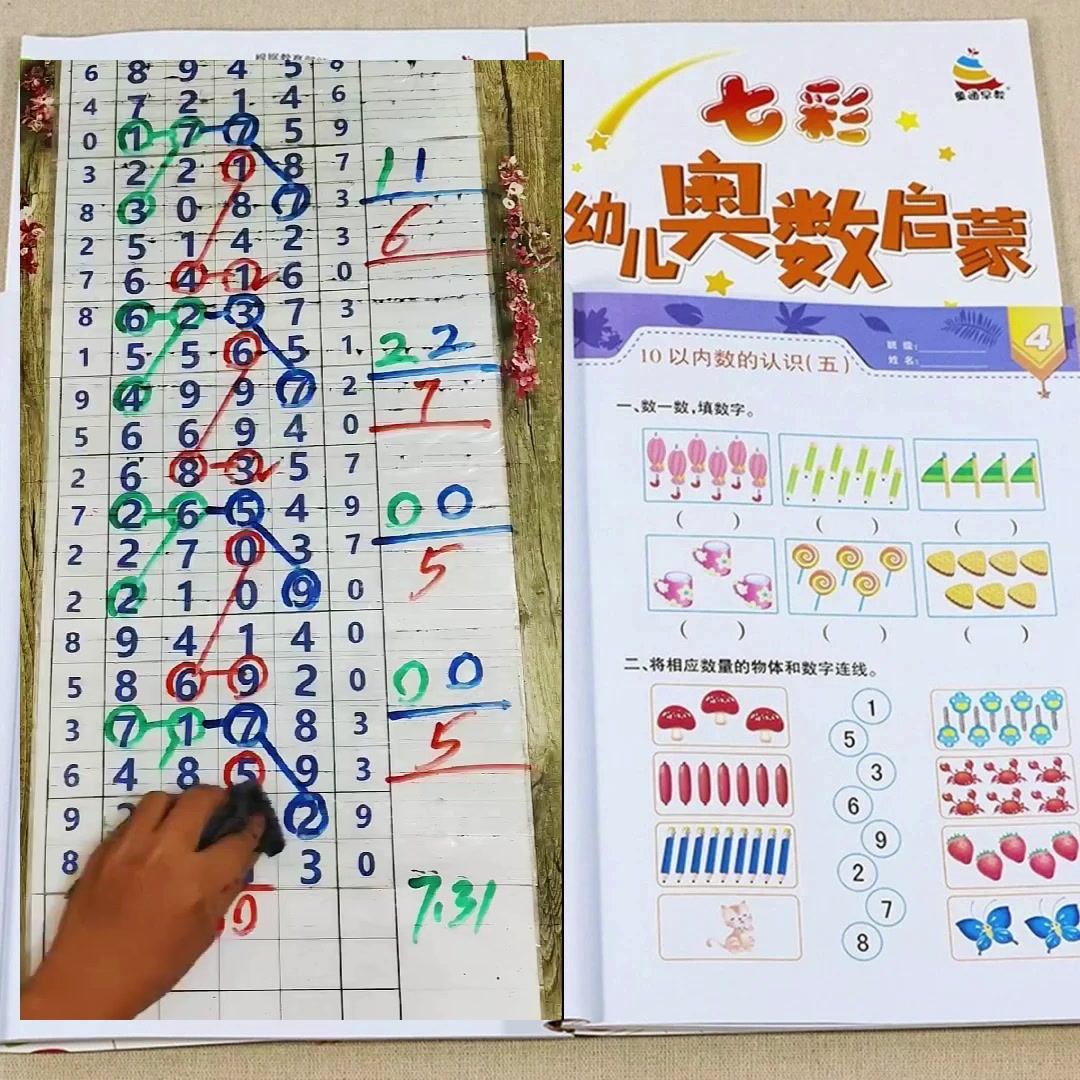 6 8 9 4 5
4 7 2 1 4 6
0 1 7 7 5 9
3 2 2 1 8 7
11
8 3 0 8 7 3
6
2 5 1 4 2 3
7 6 4 1 6 0
8 6 2 3 7 3
1 5 5 6 5 1
22
9 4 9 9 7 2
7
5 6 6 9 4 0
2 6 8 3 5 7
7 2 6 5 4 9
00
2 2 7 0 3 7
5
2 2 1 0 9 0
8 9 4 1 4 0
5 8 6 9 2 0
00
3 7 1 7 8 3
5
6 4 8 5 9 3
9 2 9
8 3 0
7.31
童通早教
七彩
幼儿奥数启蒙
班级:
姓名:
4
10以内数的认识(五)
一、数一数,填数字。
( ) ( ) ( )
( ) ( ) ( )
二、将相应数量的物体和数字连线。
1
5
3
6
9
2
7
8